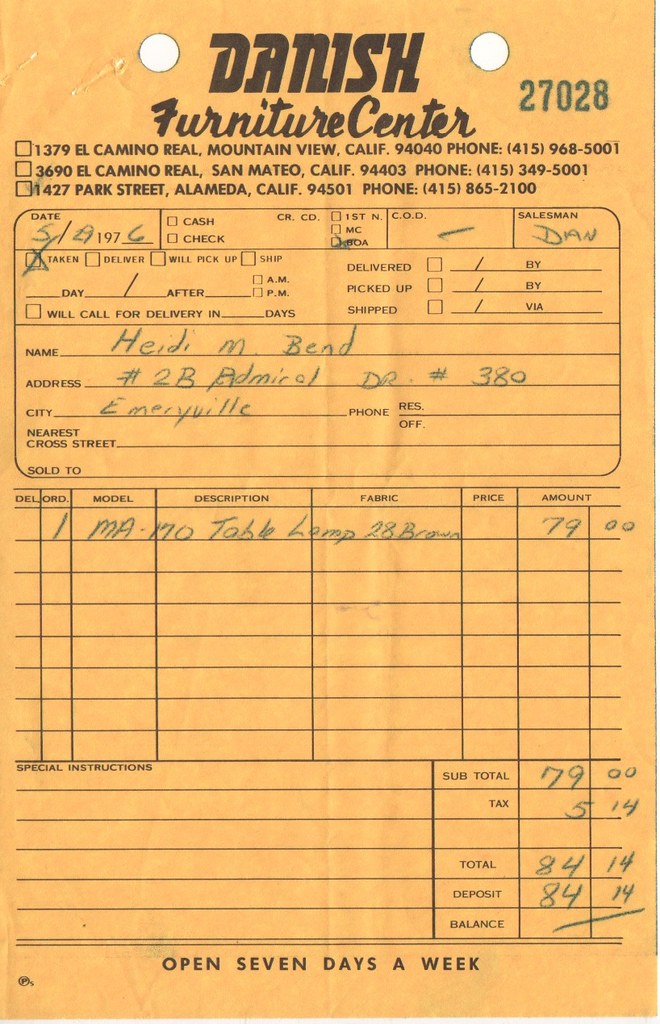 DANISH
Furniture Center
27028
1379 EL CAMINO REAL, MOUNTAIN VIEW, CALIF. 94040 PHONE: (415) 968-5001
3690 EL CAMINO REAL, SAN MATEO, CALIF. 94403 PHONE: (415) 349-5001
1427 PARK STREET, ALAMEDA, CALIF. 94501 PHONE: (415) 865-2100
DATE CASH CR. CD. 1ST N. C.O.D. SALESMAN
5/ 1976 CHECK MC BOA — DAN
TAKEN DELIVER WILL PICK UP SHIP
DELIVERED / BY
DAY / AFTER A.M. P.M.
PICKED UP / BY
WILL CALL FOR DELIVERY IN DAYS
SHIPPED / VIA
NAME Heidi M. Bend
ADDRESS # 2B Admiral DR. # 380
CITY Emeryville PHONE RES.
OFF.
NEAREST
CROSS STREET
SOLD TO
DEL. ORD. MODEL DESCRIPTION FABRIC PRICE AMOUNT
1 MA-170 Table Lamp 28 Brown 79 00
SPECIAL INSTRUCTIONS
SUB TOTAL 79 00
TAX 5 14
TOTAL 84 14
DEPOSIT 84 14
BALANCE
OPEN SEVEN DAYS A WEEK